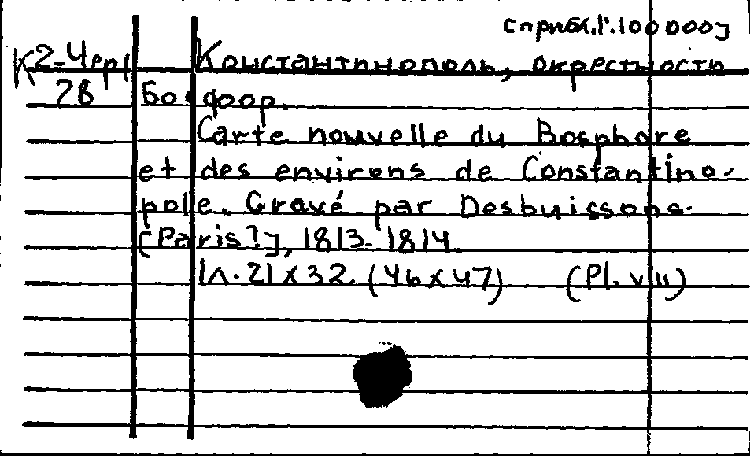 [прибл.1:100000]
К2-Чер/ Константинополь, окрестности
78 Босфор.
Carte nouvelle du Bosphore
et des environs de Constantino-
pole. Gravé par Desbuissons.
[Paris?], 1813-1814.
1л. 21x32. (46x47) (Pl. VII)